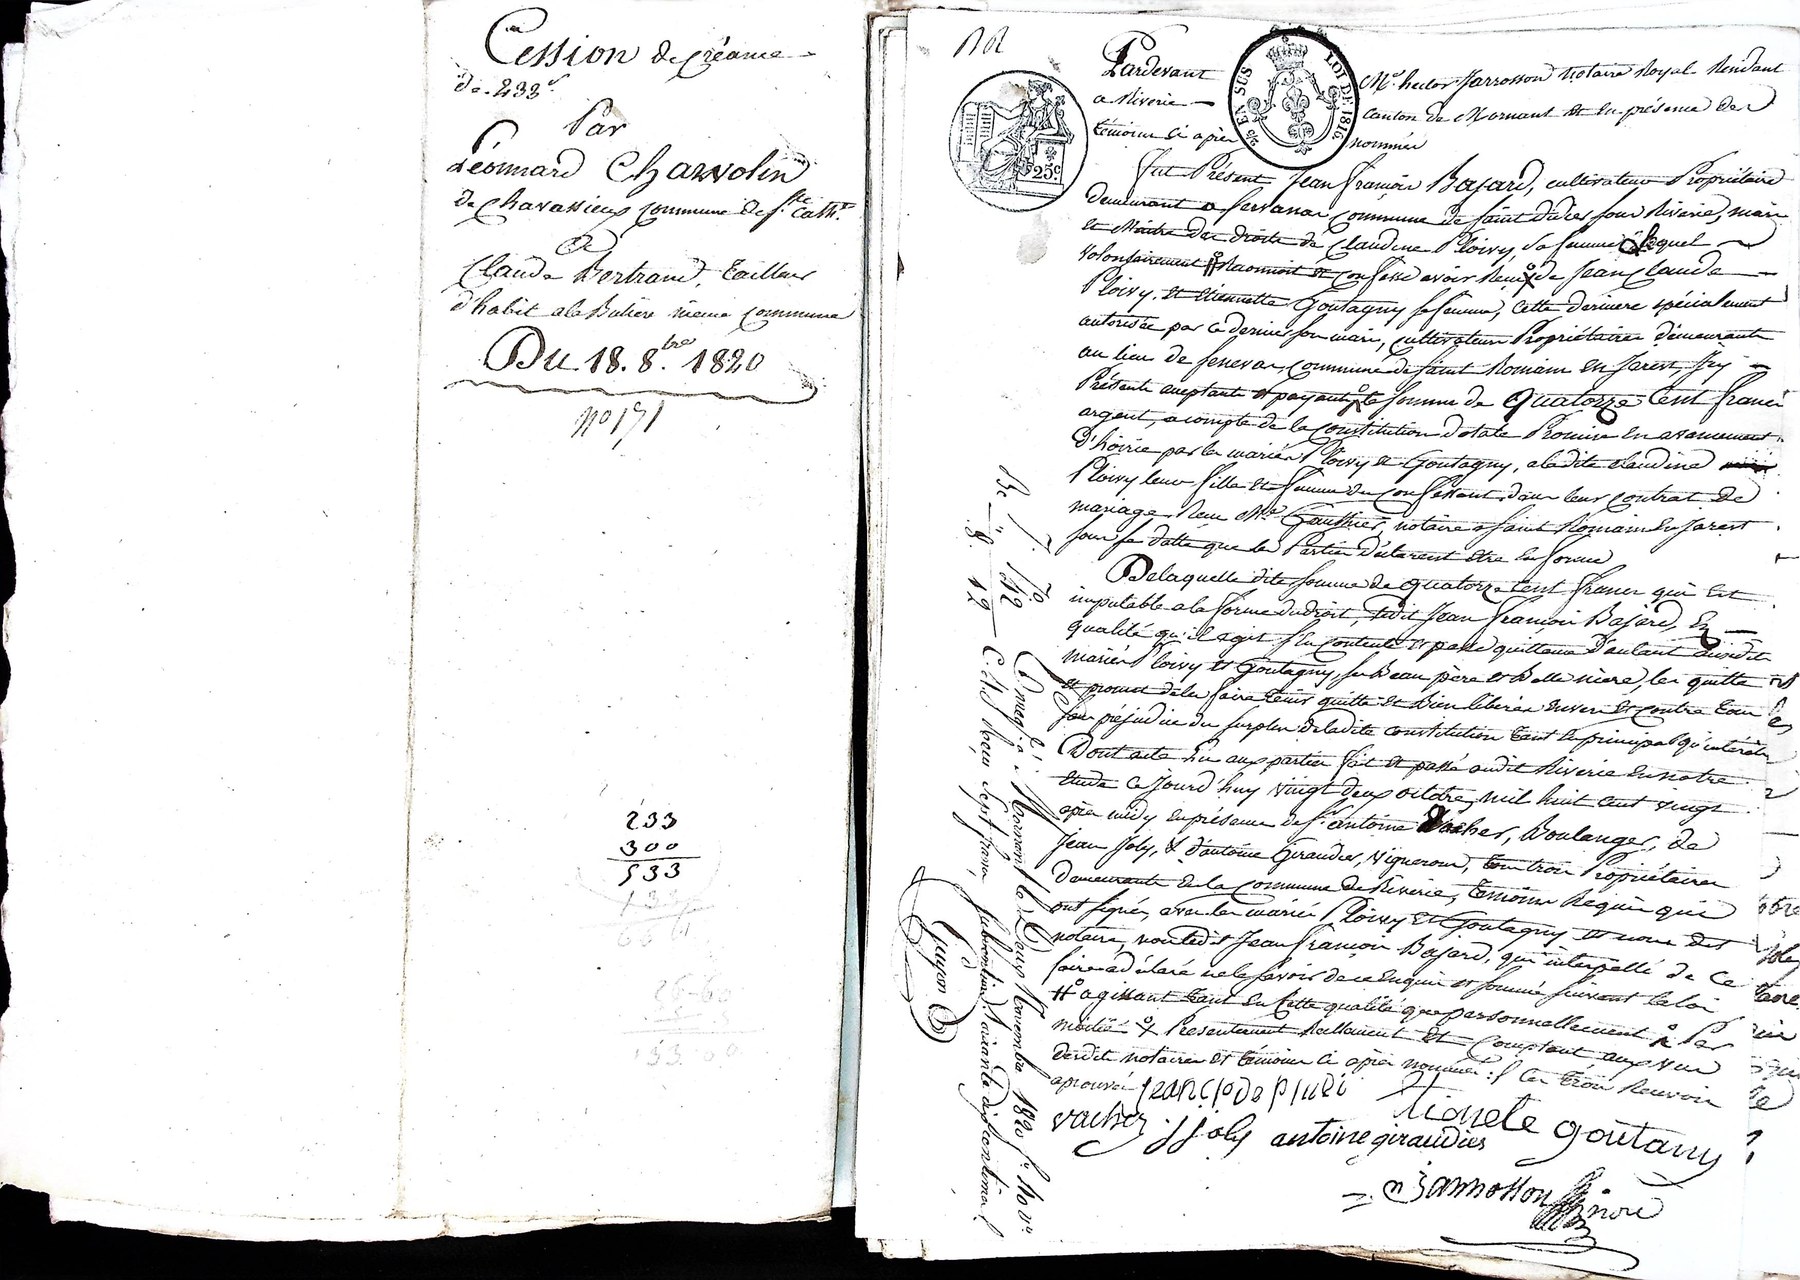 Cession de créance
de 233f.
Par
Léonnard Chazvolin
de Chavassieux commune de Ste Cathe.
A
Claude Bertrand, tailleur
d'habit a la Batiere même commune
Du 18. 8.bre 1820
No 171
233
300
533
Pardevant Me. hector Jarrosson Notaire Royal Residant
a Riverie canton de Mornant et en présence des
témoins ci après nommés
2/0 EN SUS LOI DE 1816
25c.
Fut Présent Jean François Bajard, cultivateur Propriétaire
demeurant a commune de Saint didier sous Riverie, mari
et Maitre des droits de Claudine Ploivy, sa femme lequel
volontairement # Reconnoit et confesse avoir Reçu de Jean Claude
Ploivy, et Etiennette Goutagny sa femme, cette derniere spécialement
autorisée par ce dernier son mari, cultivateurs Propriétaires demeurants
au lieu de Senevas, commune de Saint Romain en Jarest, Icy
Présents acceptants et payants la somme de quatorze cent francs
argent, a compte de la constitution dotale Promise en avancement
d'hoirie par les mariés Ploivy et Goutagny, a ladite claudine
Ploivy leur fille et femme du confessant, dans leur contrat de
mariage Reçu Me. Gauthier, notaire a Saint Romain en Jarest
sous sa datte que les Parties déclarent être en forme
De laquelle dite somme de quatorze cent francs qui est
imputable a la forme du droit, ledit Jean François Bajard, En
qualité qu'il agit s'en contente et passe quittance d'autant auxdits
mariés Ploivy et Goutagny, ses Beau père et Belle mère, les quitte
et promet de les faire tenir quitte et bien libérés envers et contre tous
sans préjudice du surplus de ladite constitution tant en principal qu'intérêts
Dont acte Lu aux parties fait et passé audit Riverie en notre
Etude ce Jourd'huy vingt deux octobre, mil huit cent vingt
après midy en présence de Sr. antoine Vacher, Boulanger, de
Jean Joly, & d'antoine Giraudier, vignerons, tous trois Propriétaires
demeurants en la commune de Riverie, témoins Requis qui
ont signés avec les mariés Ploivy et Goutagny et nous dit
notaire, non ledit Jean François Bajard, qui interpellé de ce
faire a déclaré ne le savoir de ce Enquis et sommé suivant la loi
# agissant tant en cette qualité que personnellement Par
moitié X Présentement Réellement et Comptant aux vus
desdit notaire et témoins ci après nommés: Les trois Renvois
aprouvés
vacher JJoly antoine giraudier
goutany
Jarrosson
Enregé. à Mornant le Deux Novembre 1820
C. 8. Reçu sept francs, subvention soixante dix centimes
Guyon